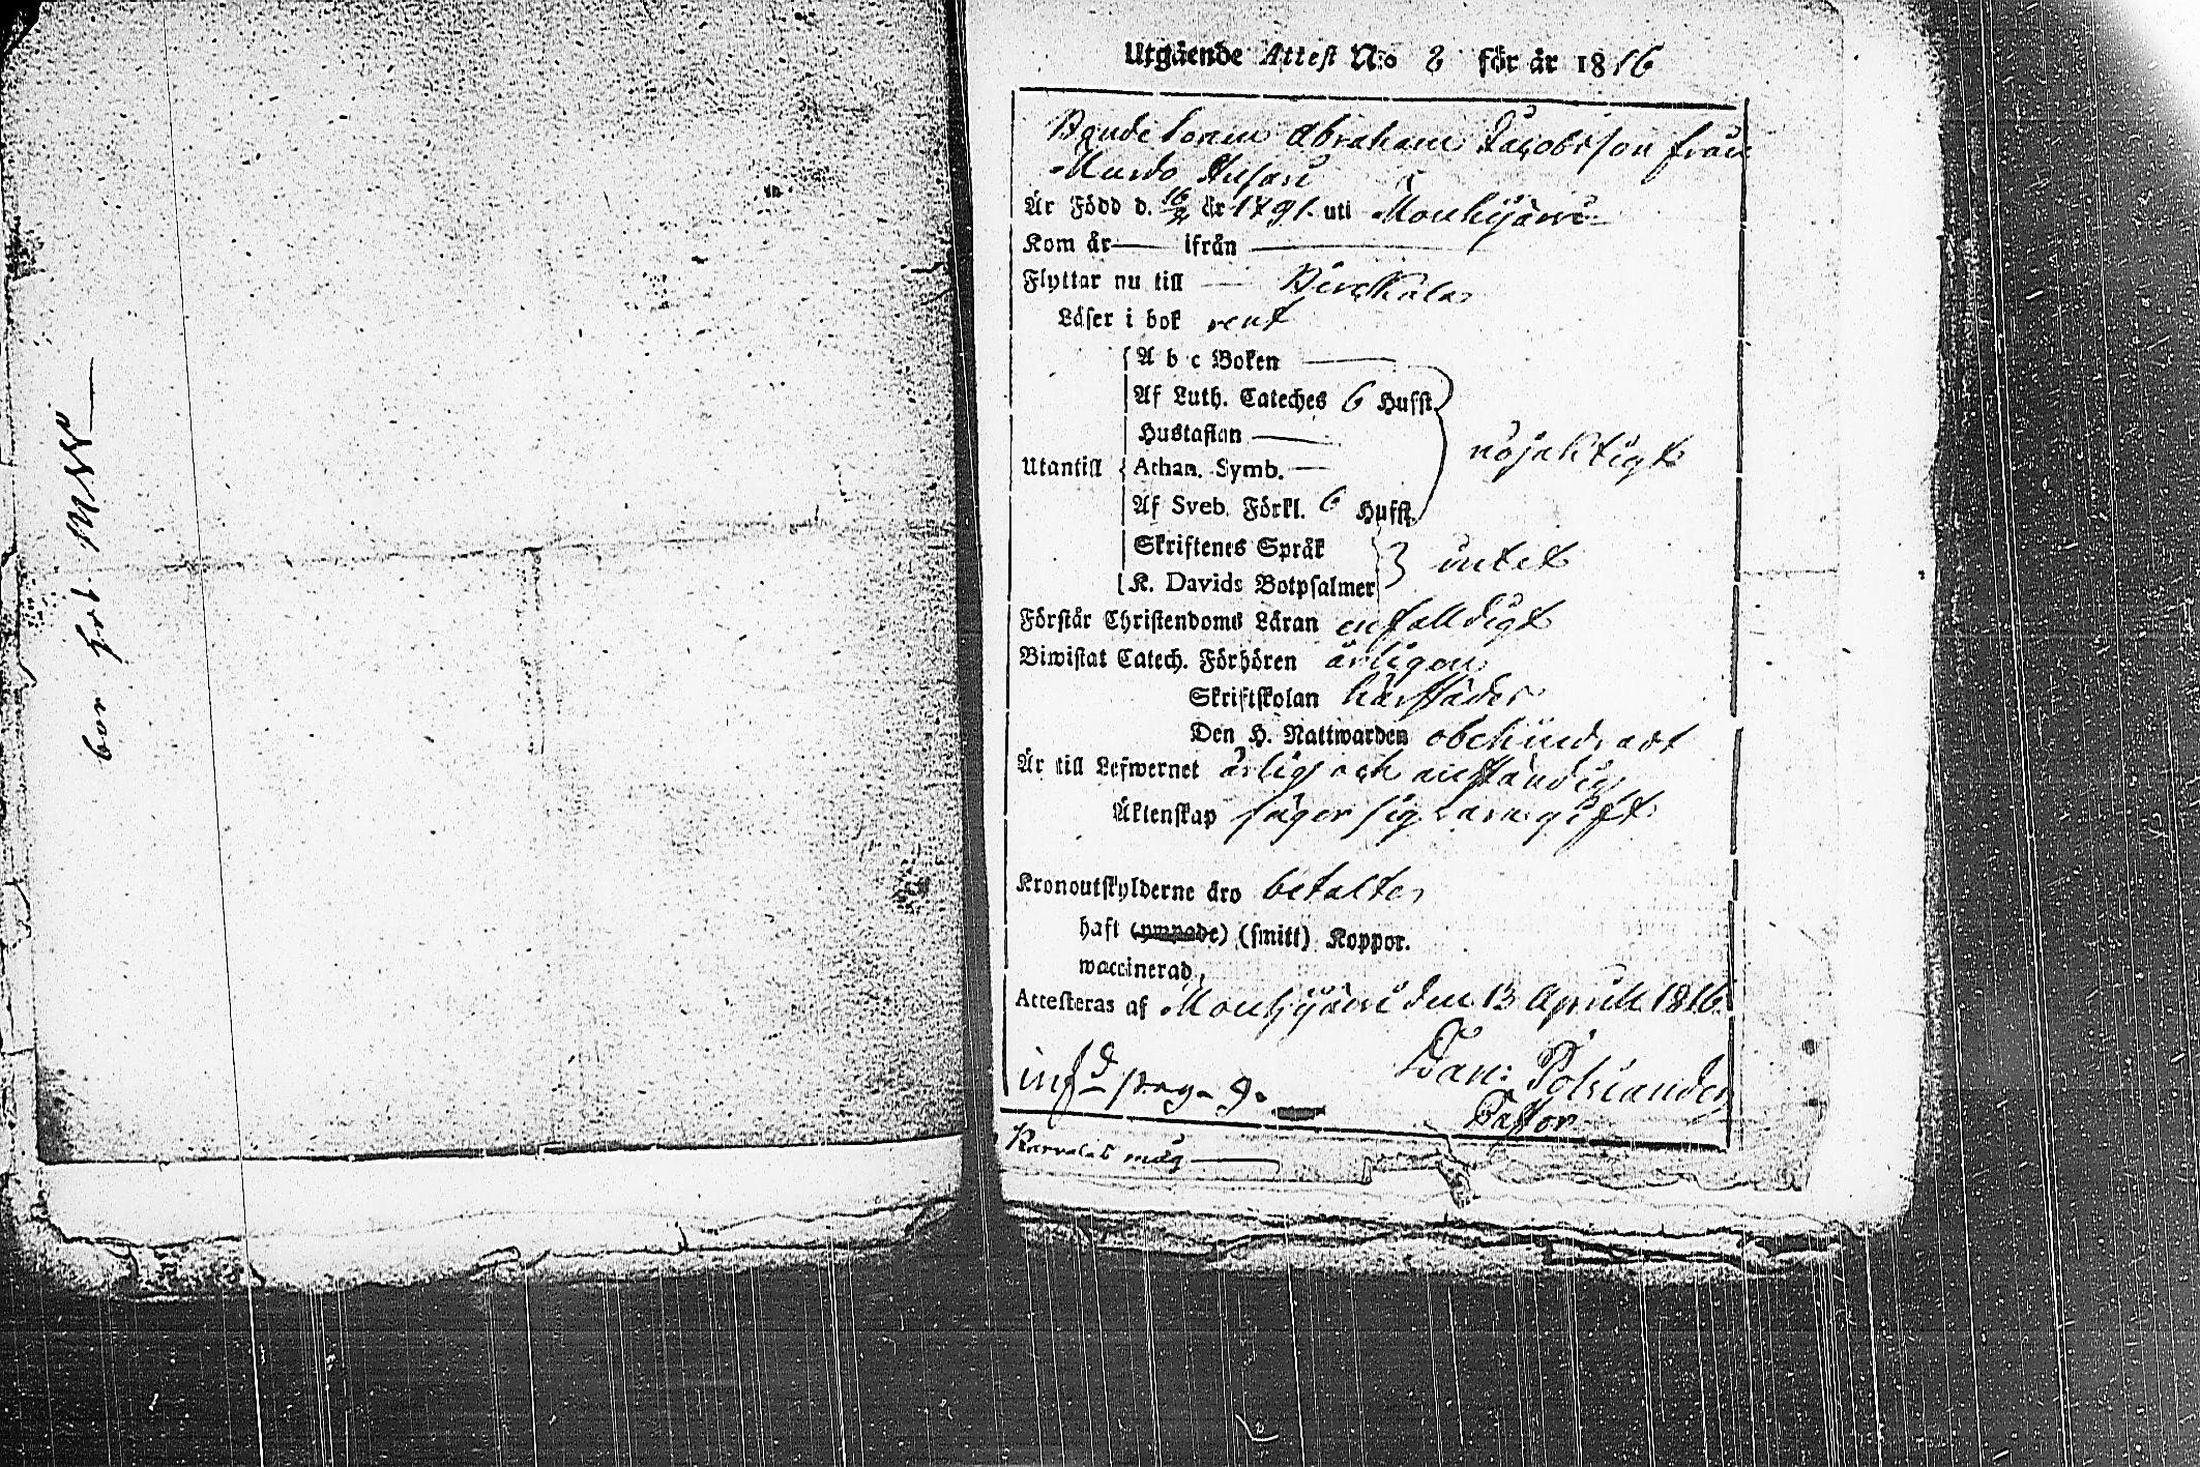 bor hos
Utgående Attest No 8 för år 1816
Bonde Sonen Abraham Jacobsson från
Murdo Anfari
Är Född d. 16/2 år 1791. uti Mouhijärvi
Kom år — ifrån —
Flyttar nu till — Birckala
Läser i bok rent
A b c Boken —
Af Luth. Cateches 6 Hufst.
Hustaflan —
nöjaktigt
Utantill Athan. Symb. —
Af Sveb. Förkl. 6 Hufst.
Skriftenes Språk
intet
K. Davids Botpsalmer
Förstår Christendoms Läran enfalldigt
Biwistat Catech. Förhören årligen
Skriftskolan härstädes
Den H. Nattwarden obehindradt
Är till Lefwernet ärlig och anständig
Äktenskap säger sig vara gift
Kronoutskylderne äro betalte
haft (ympade) (smitt) Koppor.
waccinerad,
Attesteras af Mouhijärvi den 13 April 1816.
Dan: Polviander
inf d pag. 9.
Pastor
Karvalas måg —